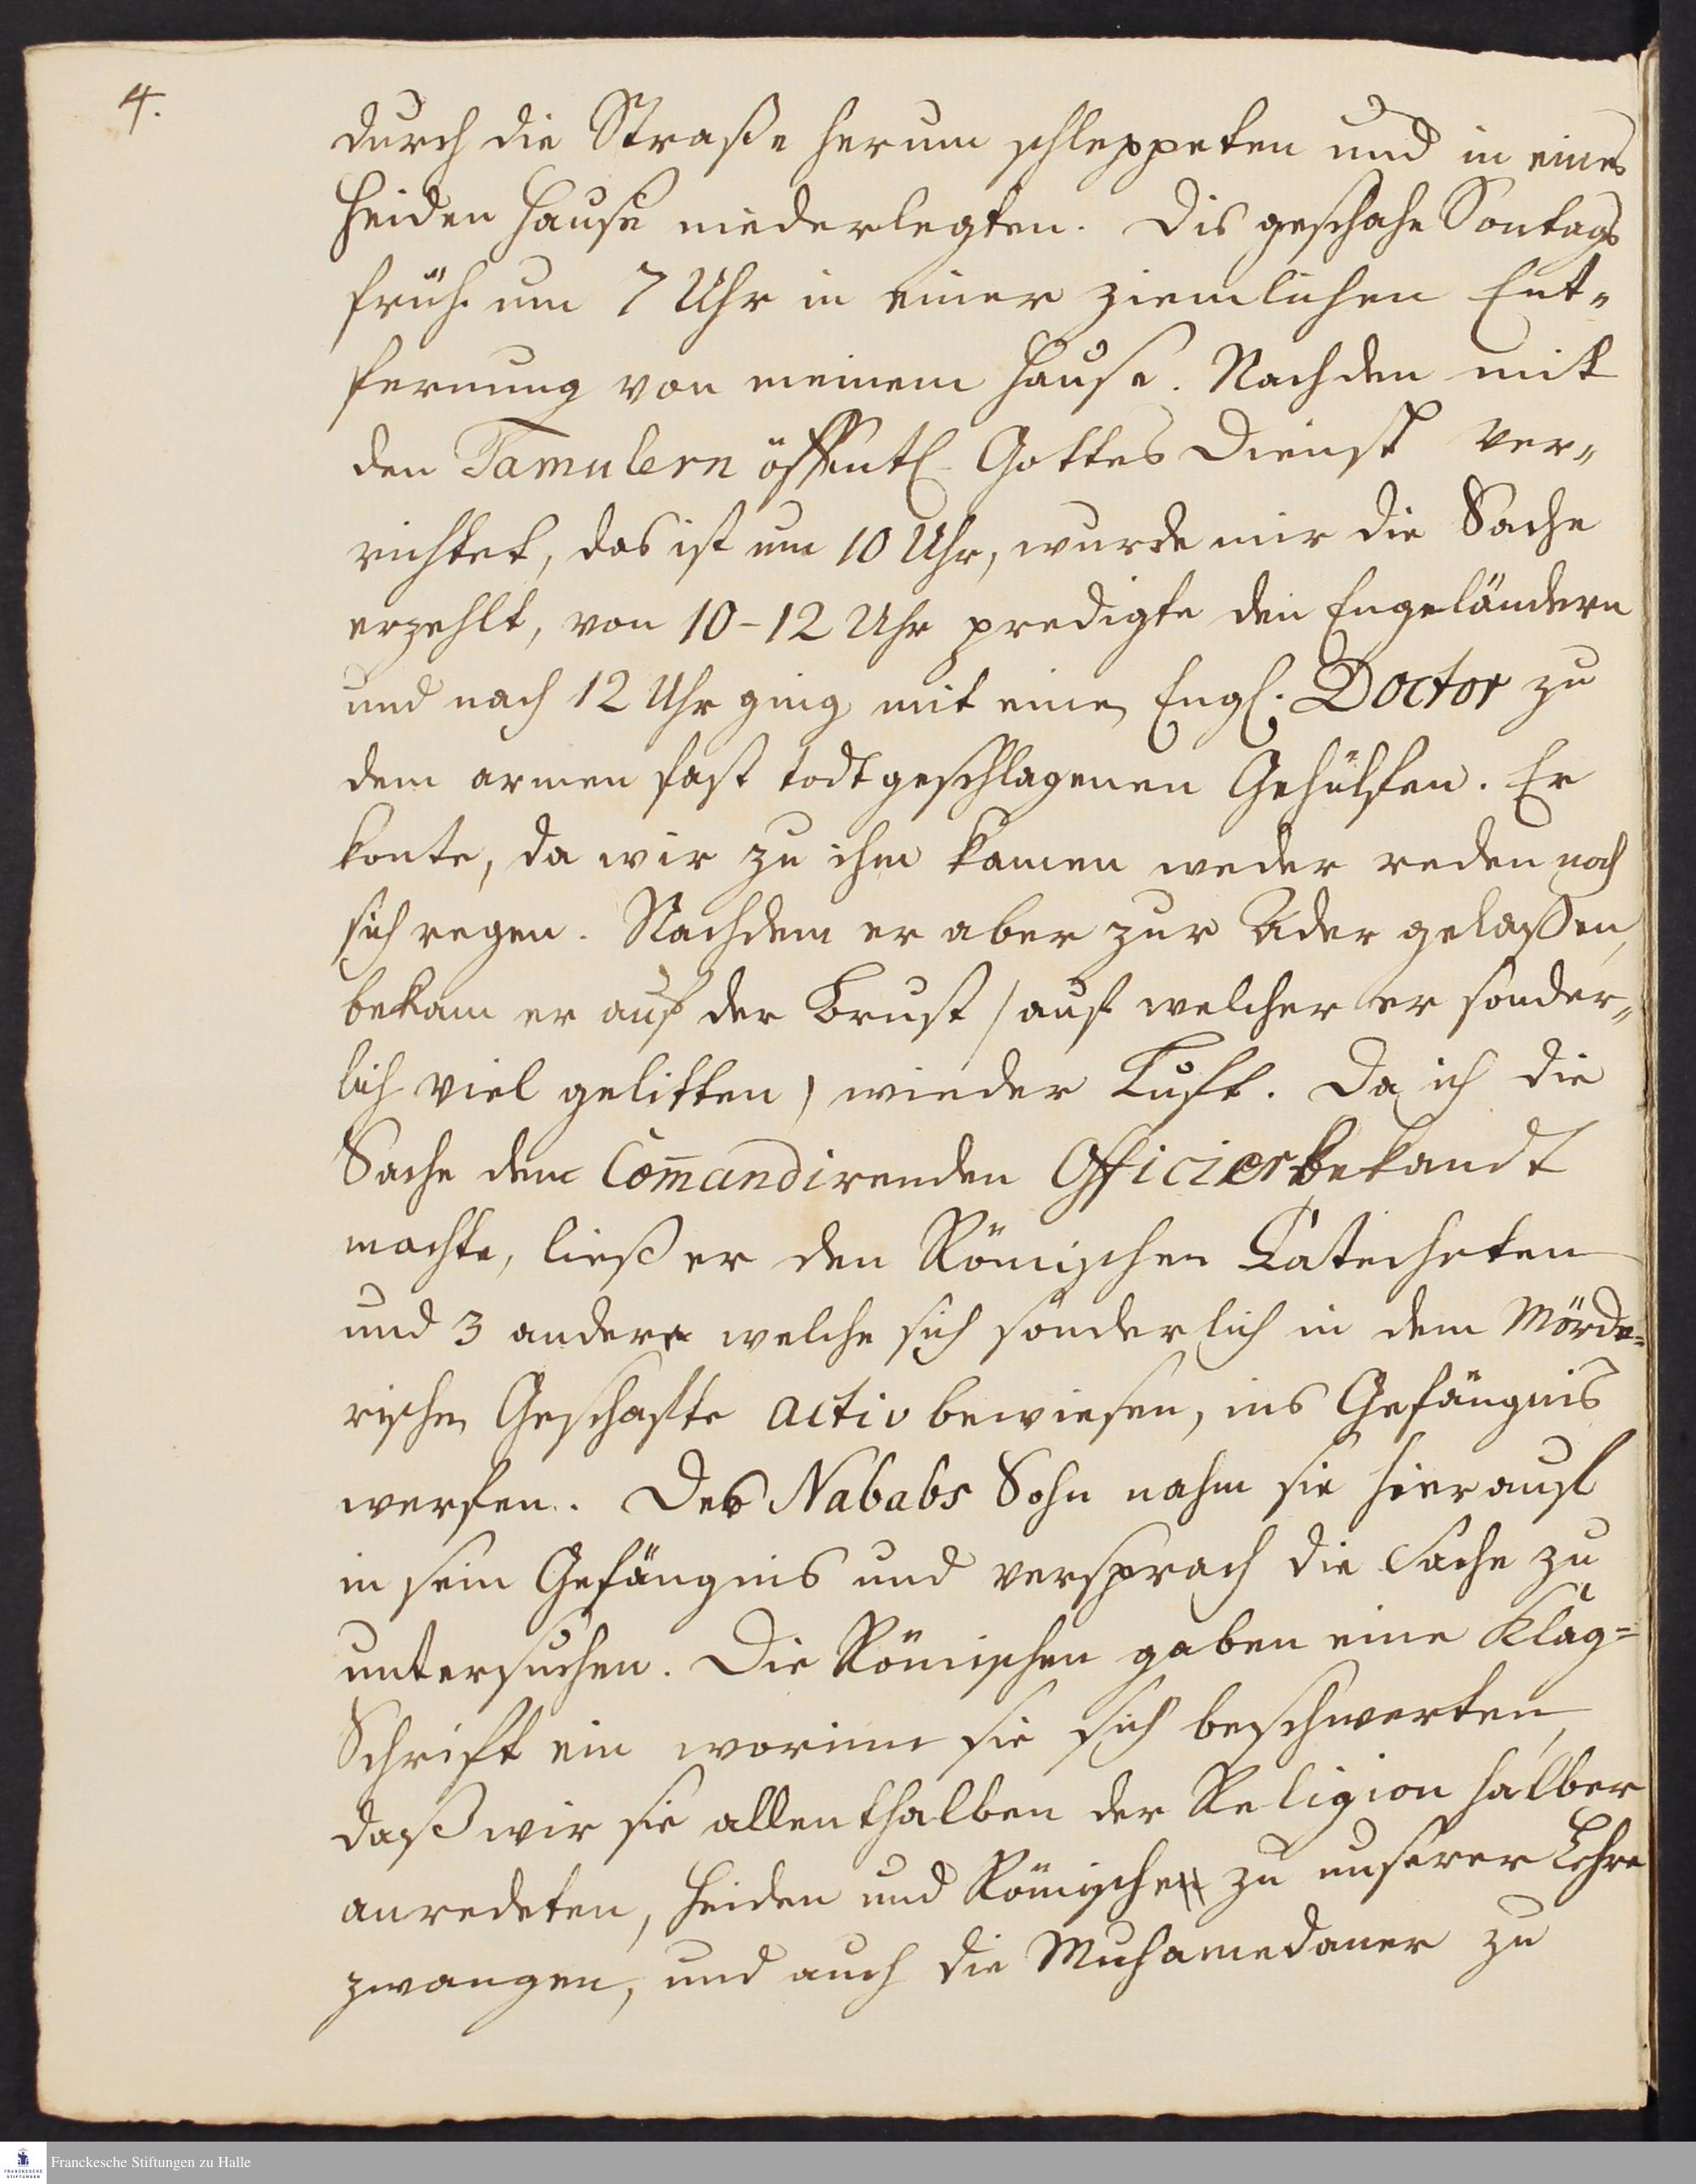 4.
durch die Straße herum schleppeten und in eines
Heiden Hause niederlegten. Dis geschahe Sontags
früh um 7 Uhr in einer ziemlichen Ent-
fernung von meinem Hause. Nachden mit
den Tamulern öffentl. Gottes Dienst ver-
richtet, das ist um 10 Uhr, wurde mir die Sache
erzehlt, von 10-12 Uhr predigte den Engeländern
und nach 12 Uhr ging mit einen Engl. Doctor zu
dem armen fast todtgeschlagenen Gehülfen. Er
konte, da wir zu ihm kamen weder reden noch
sich regen. Nachdem er aber zur Ader gelaßen,
bekam er auf der Brust /auf welcher er sonder-
lich viel gelitten) wieder Luft. Da ich die
Sache dem Com̅andirenden Officier bekandt
machte, ließ er den Römischen Catecheten
und 3 andere welche sich sonderlich in dem Mörde-
rischen Geschafte activ bewiesen, ins Gefängnis
werfen. Des Nababs Sohn nahm sie hierauf
in sein Gefängnis und versprach die Sache zu
untersuchen. Die Römischen gaben eine Klag-
Schrift ein worinn sie sich beschwerten,
daß wir sie allenthalben der Religion halber
anredeten, Heiden und Römische zu unserer Lehre
zwangen, und auch die Muhamedaner zu
Franckesche Stiftungen zu Halle
FRANCKESCHE
STIFTUNGEN